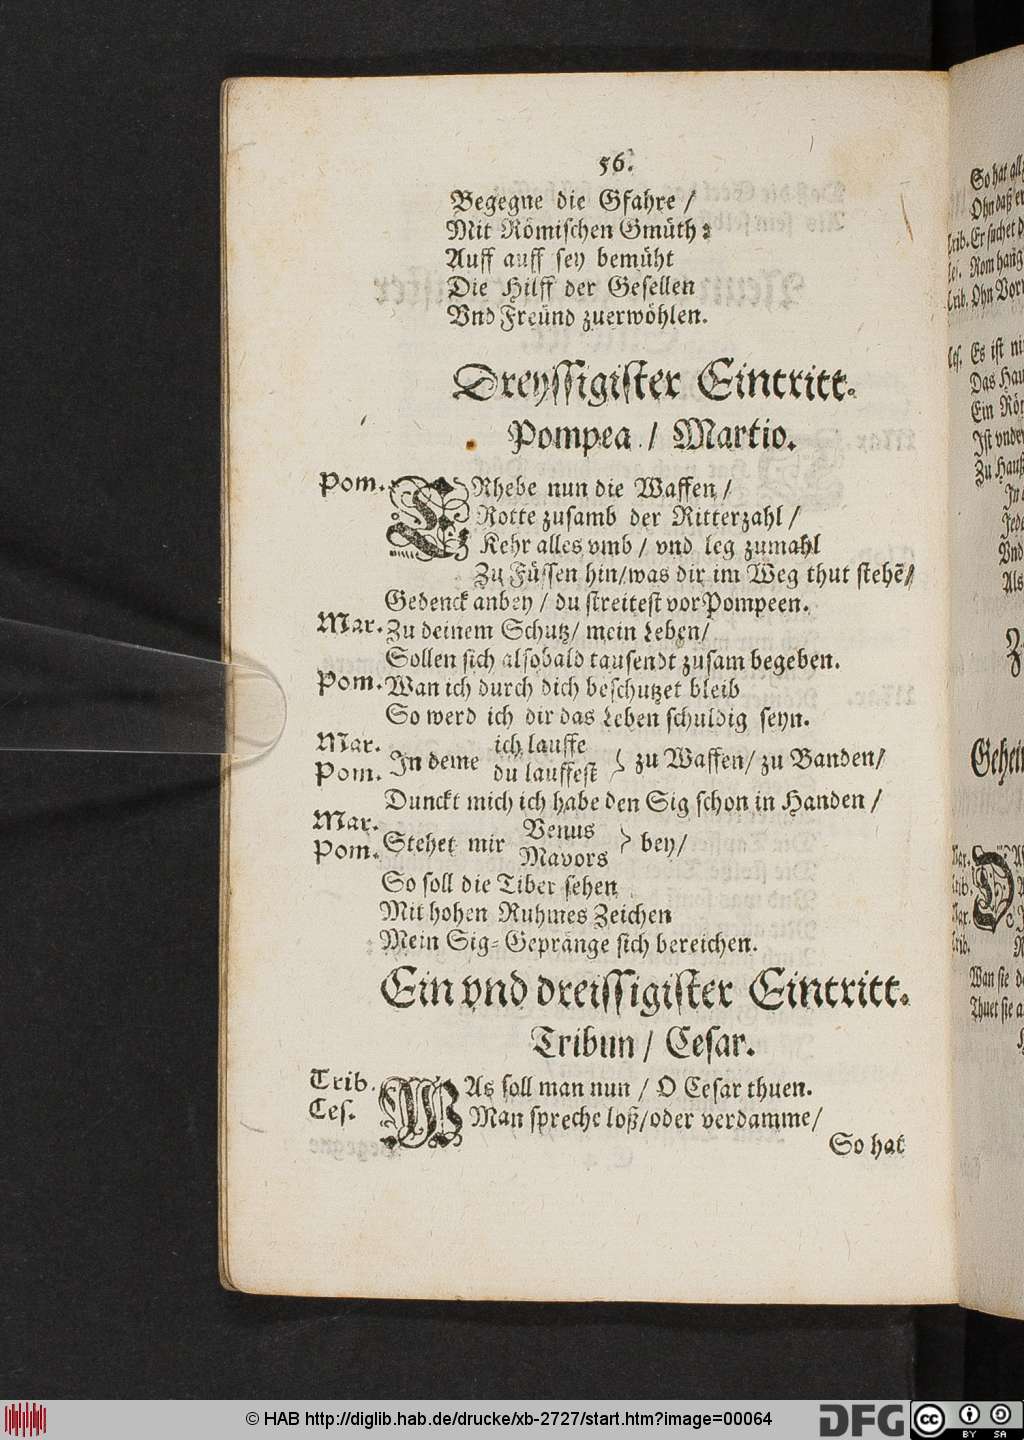 56.
Begegne die Gfahre /
Mit Römischen Gmüth:
Auff auff sey bemüht
Die Hilff der Gesellen
Vnd Freünd zuerwöhlen.
Dreyssigister Eintritt.
Pompea / Martio.
Pom. ERhebe nun die Waffen /
Rotte zusamb der Ritterzahl /
Kehr alles vmb / vnd leg zumahl
Zu Füssen hin/was dir im Weg thut stehẽ/
Gedenck anbey / du streitest vor Pompeen.
Mar. Zu deinem Schutz/ mein Leben/
Sollen sich alsobald tausendt zusam begeben.
Pom. Wan ich durch dich beschutzet bleib
So werd ich dir das Leben schuldig seyn.
Mar. ich lauffe
In deme } zu Waffen/ zu Banden/
Pom. du lauffest
Dunckt mich ich habe den Sig schon in Handen /
Mar. Venus
Stehet mir } bey/
Pom. Mavors
So soll die Tiber sehen
Mit hohen Ruhmes Zeichen
Mein Sig-Gepränge sich bereichen.
Ein vnd dreissigister Eintritt.
Tribun / Cesar.
Trib. WAs soll man nun / O Cesar thuen.
Ces. Man spreche loß/oder verdamme/
So hat
So hat
Ohn daß
trib. Er suchet
Rom
trib. Ohn
Ces. Es ist
Das
Ein
Ist
Zu
Jn
Vnd
Als
Z
Mar.
trib.
Mar.
trib.
D
Wan sie
Thuet sie
© HAB http://diglib.hab.de/drucke/xb-2727/start.htm?image=00064
DFG
cc
BY SA